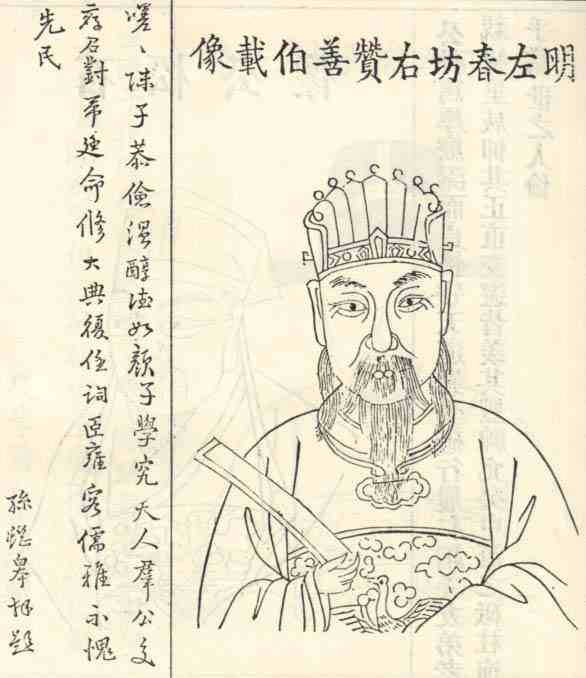 明左春坊右贊善伯載像
嗟〻陳子恭儉溫醇德如顏子學究天人羣公交
薦召對帝廷命修大典復任詞臣雍容儒雅不愧
先民
孫繼皋拜題